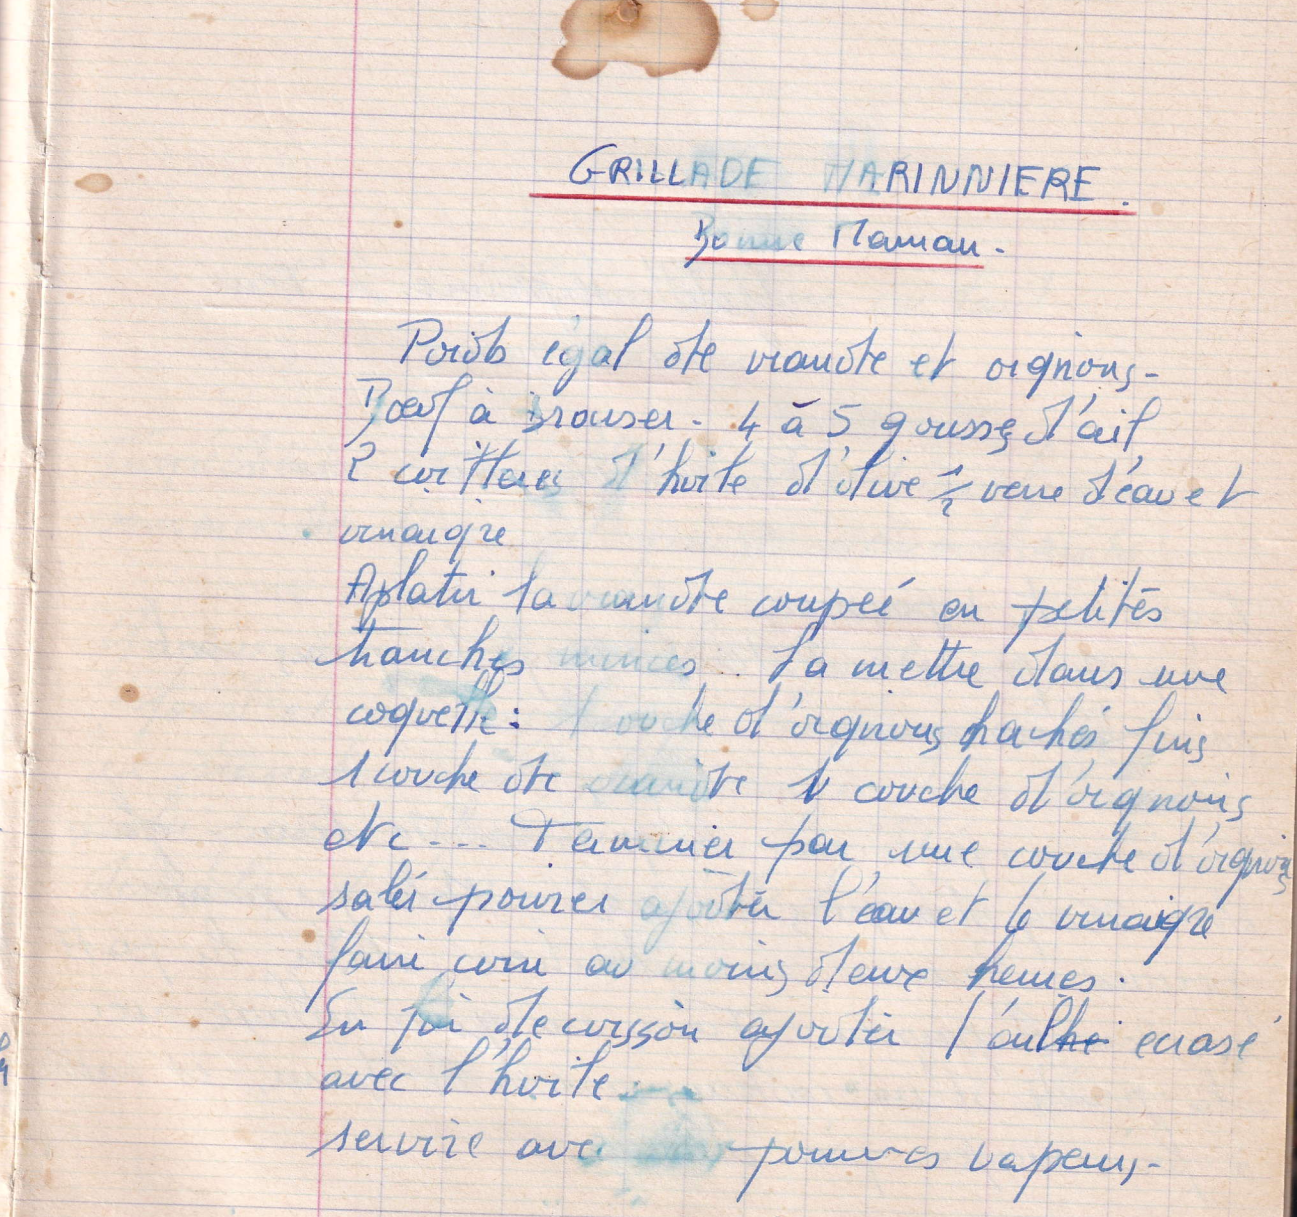 GRILLADE MARINNIERE.
Bonne Maman.
Poids égal de viande et oignons-
Boeuf à braiser - 4 à 5 gousses d'ail
2 cuillères d'huile d'olive 1/2 verre d'eau et
vinaigre
Aplatir la viande coupéé en petités
tranches minces. La mettre dans une
coquette: 1 couche d'oignons hachés fins
1 couche de viande 1 couche d'oignons
etc --- Terminer par une couche d'oignons
saler poivrer ajouter l'eau et le vinaigre
faire cuire au moins deux heures.
En fin de cuisson ajouter l'ail écrasé
avec l'huile.
servire avec pommes vapeurs-